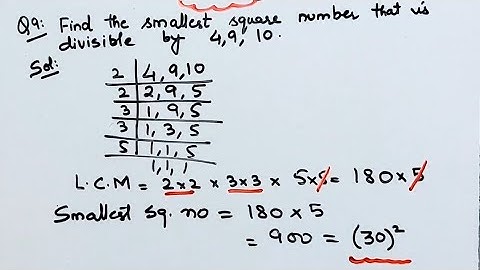 Q9: Find the smallest square number that is
divisible by 4, 9, 10.
Sol:
2 | 4, 9, 10
2 | 2, 9, 5
3 | 1, 9, 5
3 | 1, 3, 5
5 | 1, 1, 5
1, 1, 1
L.C.M = 2×2 × 3×3 × 5×5 = 180×5
Smallest sq. no = 180 × 5
= 900 = (30)²